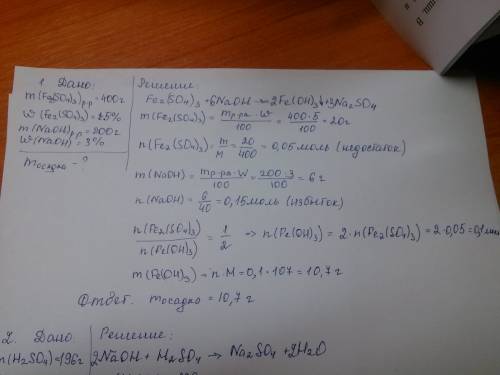 1. Дано:
m(Fe2(SO4)3)р-р = 400г
W(Fe2(SO4)3) = 5%
m(NaOH)р-р = 200г
W(NaOH) = 3%
mосадка - ?
Решение:
Fe2(SO4)3 + 6NaOH → 2Fe(OH)3↓ + 3Na2SO4
m(Fe2(SO4)3) = mр-ра · W / 100 = 400·5 / 100 = 20г
n(Fe2(SO4)3) = m / M = 20 / 400 = 0,05 моль (недостаток)
m(NaOH) = mр-ра · W / 100 = 200·3 / 100 = 6г
n(NaOH) = 6 / 40 = 0,15моль (избыток)
n(Fe2(SO4)3) / n(Fe(OH)3) = 1 / 2 => n(Fe(OH)3) = 2·n(Fe2(SO4)3) = 2·0,05 = 0,1
m(Fe(OH)3) = n·M = 0,1·107 = 10,7г
Ответ: mосадка = 10,7г
2. Дано:
m(H2SO4) = 196г
Решение:
2NaOH + H2SO4 → Na2SO4 + 2H2O